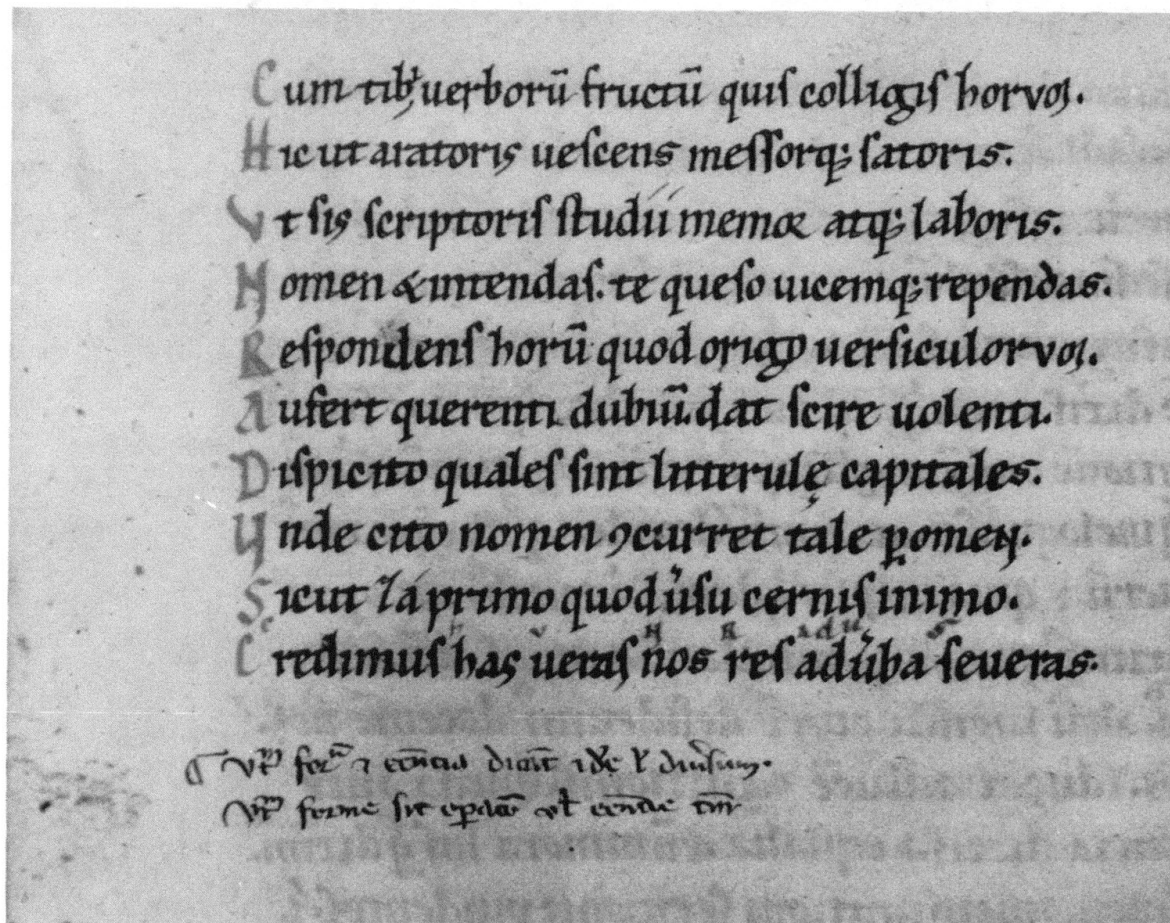 Cum tibi uerborū fructū quis colligis horvꝝ.
Hic ut aratoris uescens messorq; satoris.
Vt sis scriptoris studii memor atq; laboris.
Nomen & intendas. te queso uicemq; rependas.
Respondens horū quod origo uersiculorvꝝ.
Aufert querenti dubiū. dat scire uolenti.
Dispicito quales sint litterulę capitales.
Unde cito nomen ꝯcurret tale ꝑ omen.
Sicut primo quod uisu cernis in imo.
Credimus has ueras nos res aduba seueras.
forma ⁊ dicunt idē ł
forme sit